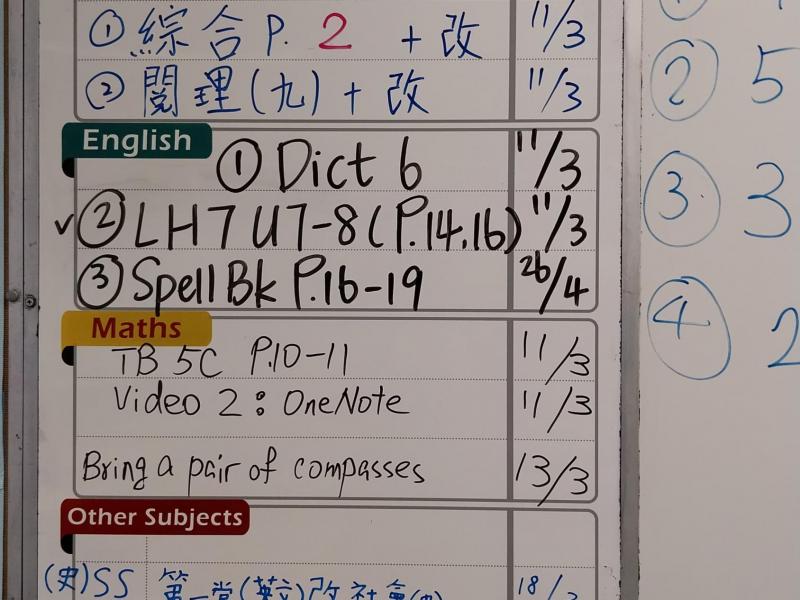 ① 綜合 P. 2 + 改 11/3
② 閱理(九) + 改 11/3
English
① Dict 6 11/3
✓② LH7 U7-8 (P.14.16) 11/3
③ Spell Bk P.16-19 26/4
Maths
TB 5C P.10-11 11/3
Video 2: OneNote 11/3
Bring a pair of compasses 13/3
Other Subjects
(史) SS 第一堂(英文)改社會 18/
② 5
③ 3
④ 2